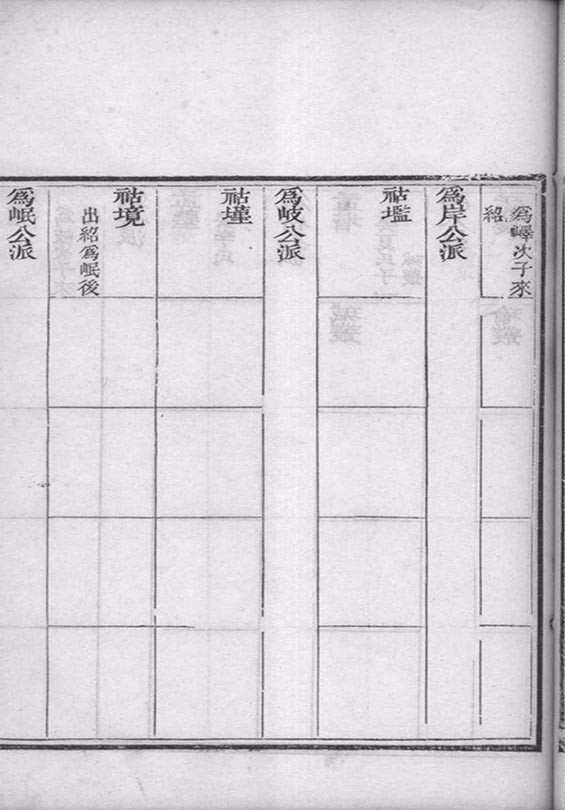 爲嶧次子來
紹
爲岸公派
祜壏
爲岐公派
祜墐
祜境
出紹爲岷後
爲岷公派